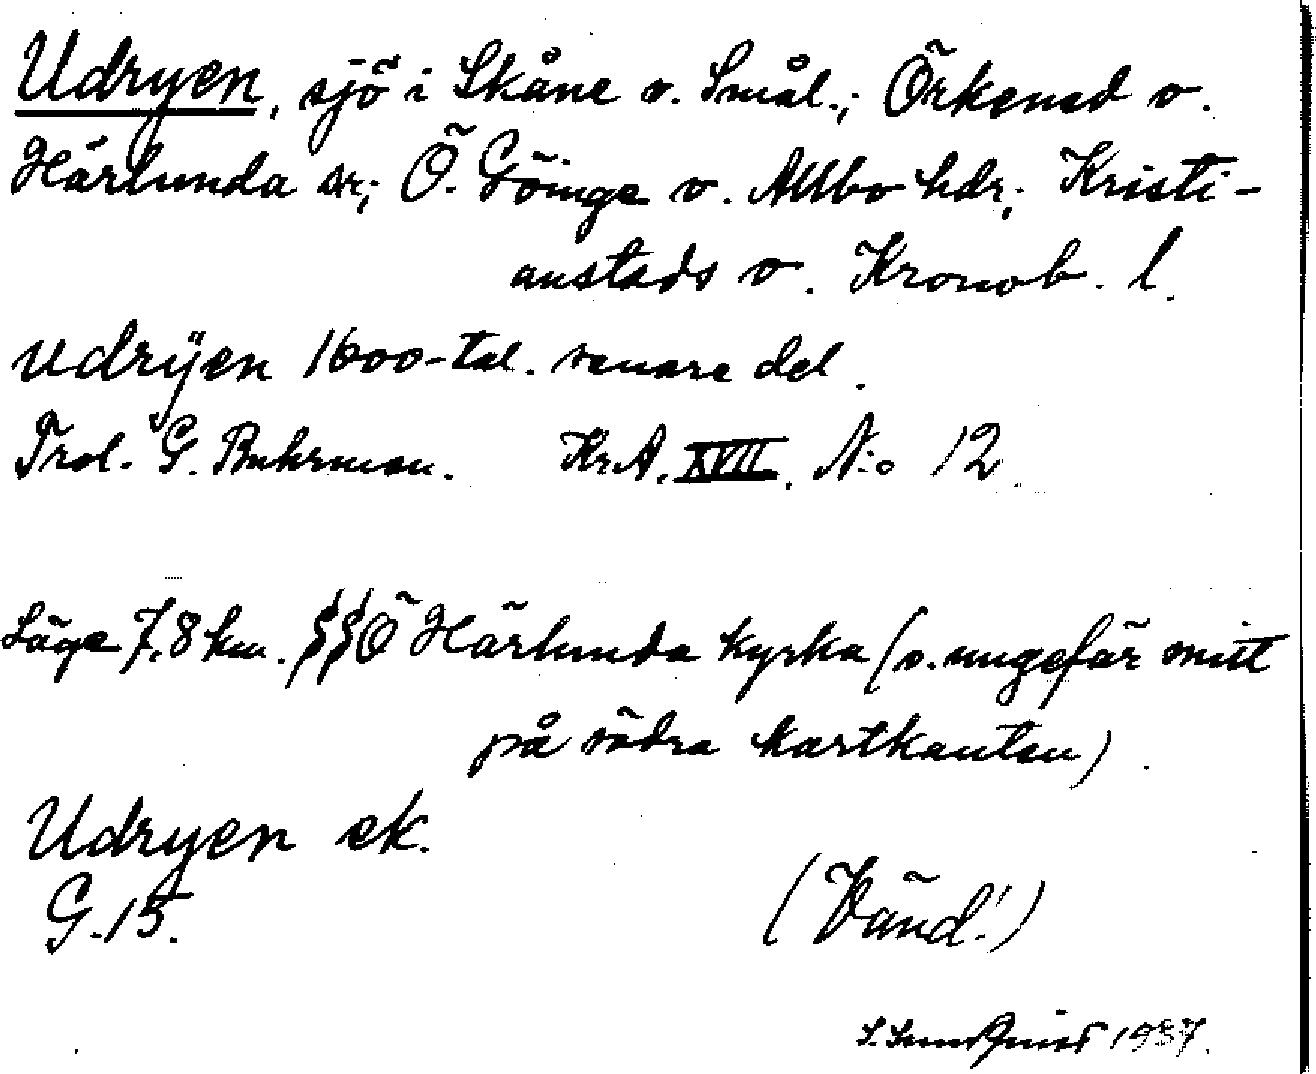 Udryen, sjö i Skåne o. Smål.; Örkened o.
Härlunda sr; Ö. Göinge o. Allbo hdr; Kristi-
anstads o. Kronob. l.
Udrÿen 1600-tal. senare del.
Trol. G. Buhrman. Kr.A. XVII. N:o 12.
Läge 7,8 km. SSÖ Härlunda kyrka (o. ungefär mitt
på södra kartkanten).
Udryen ek.
G. 15.
(Vänd!)
S. Sundquist 1937.